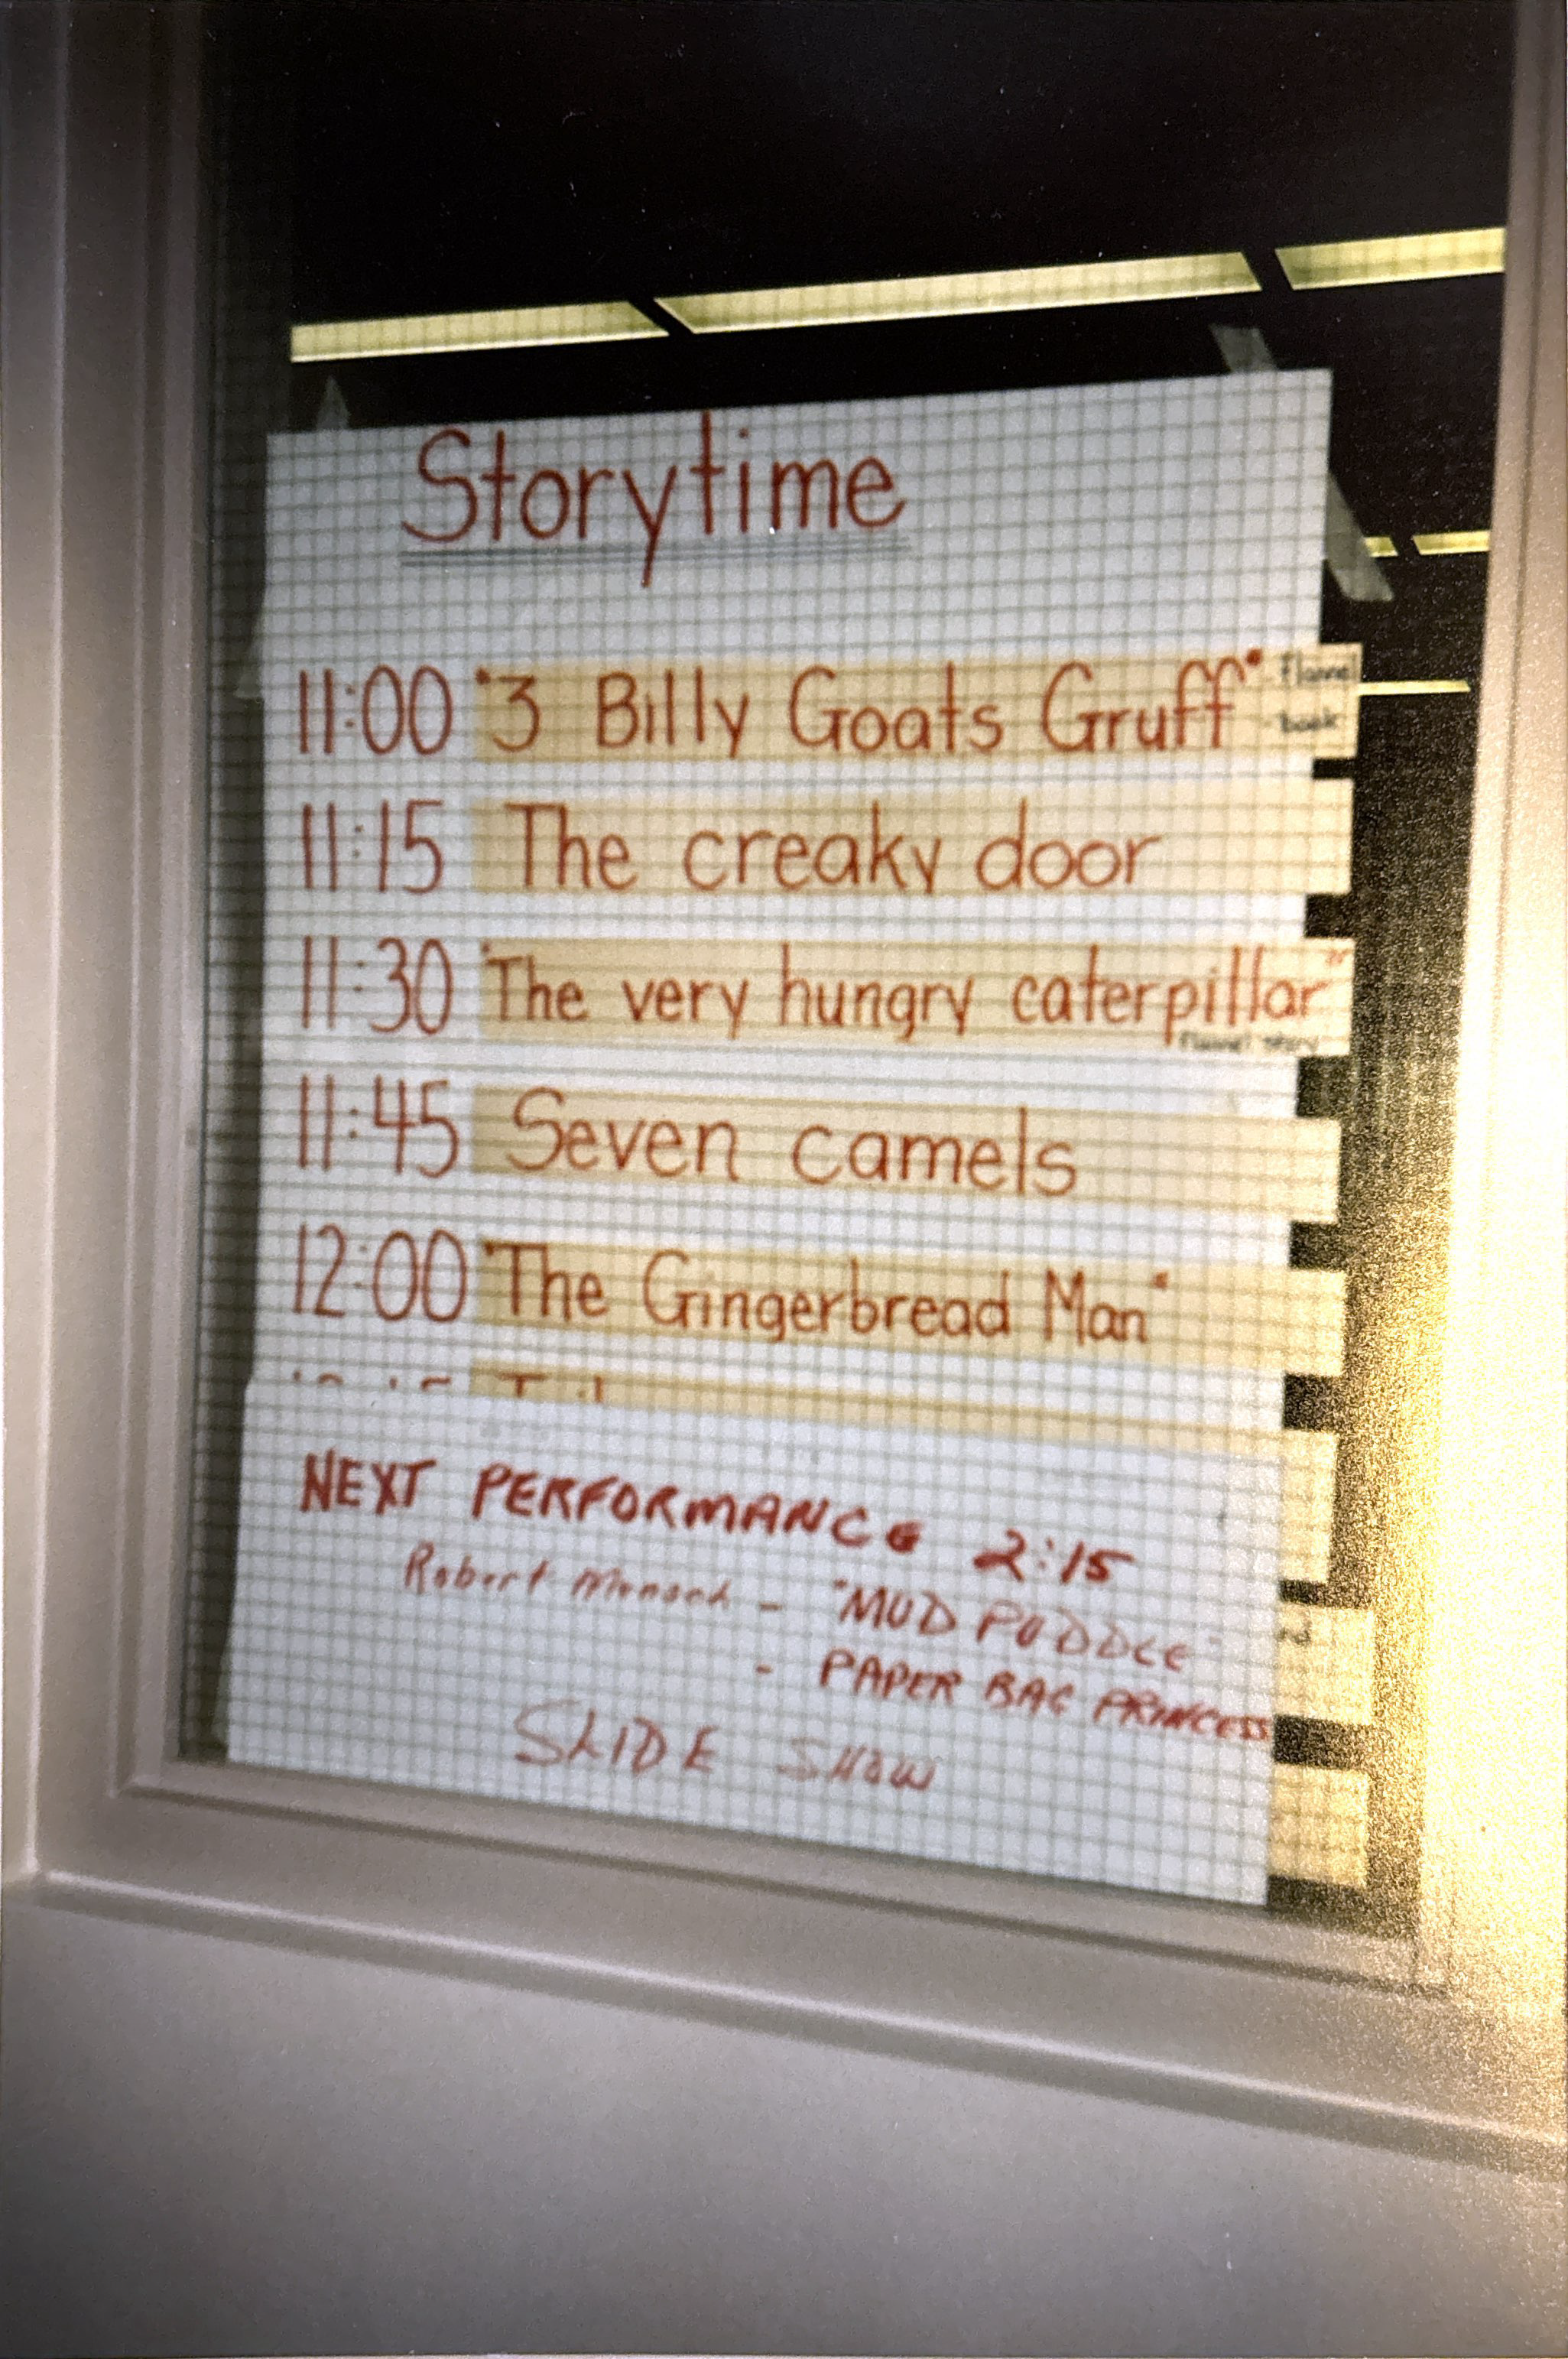 Storytime
11:00 "3 Billy Goats Gruff" flannel
book
11:15 The creaky door
11:30 "The very hungry caterpillar"
flannel story
11:45 Seven camels
12:00 "The Gingerbread Man"
NEXT PERFORMANCE 2:15
Robert Munsch - "MUD PUDDLE"
- PAPER BAG PRINCESS
SLIDE SHOW